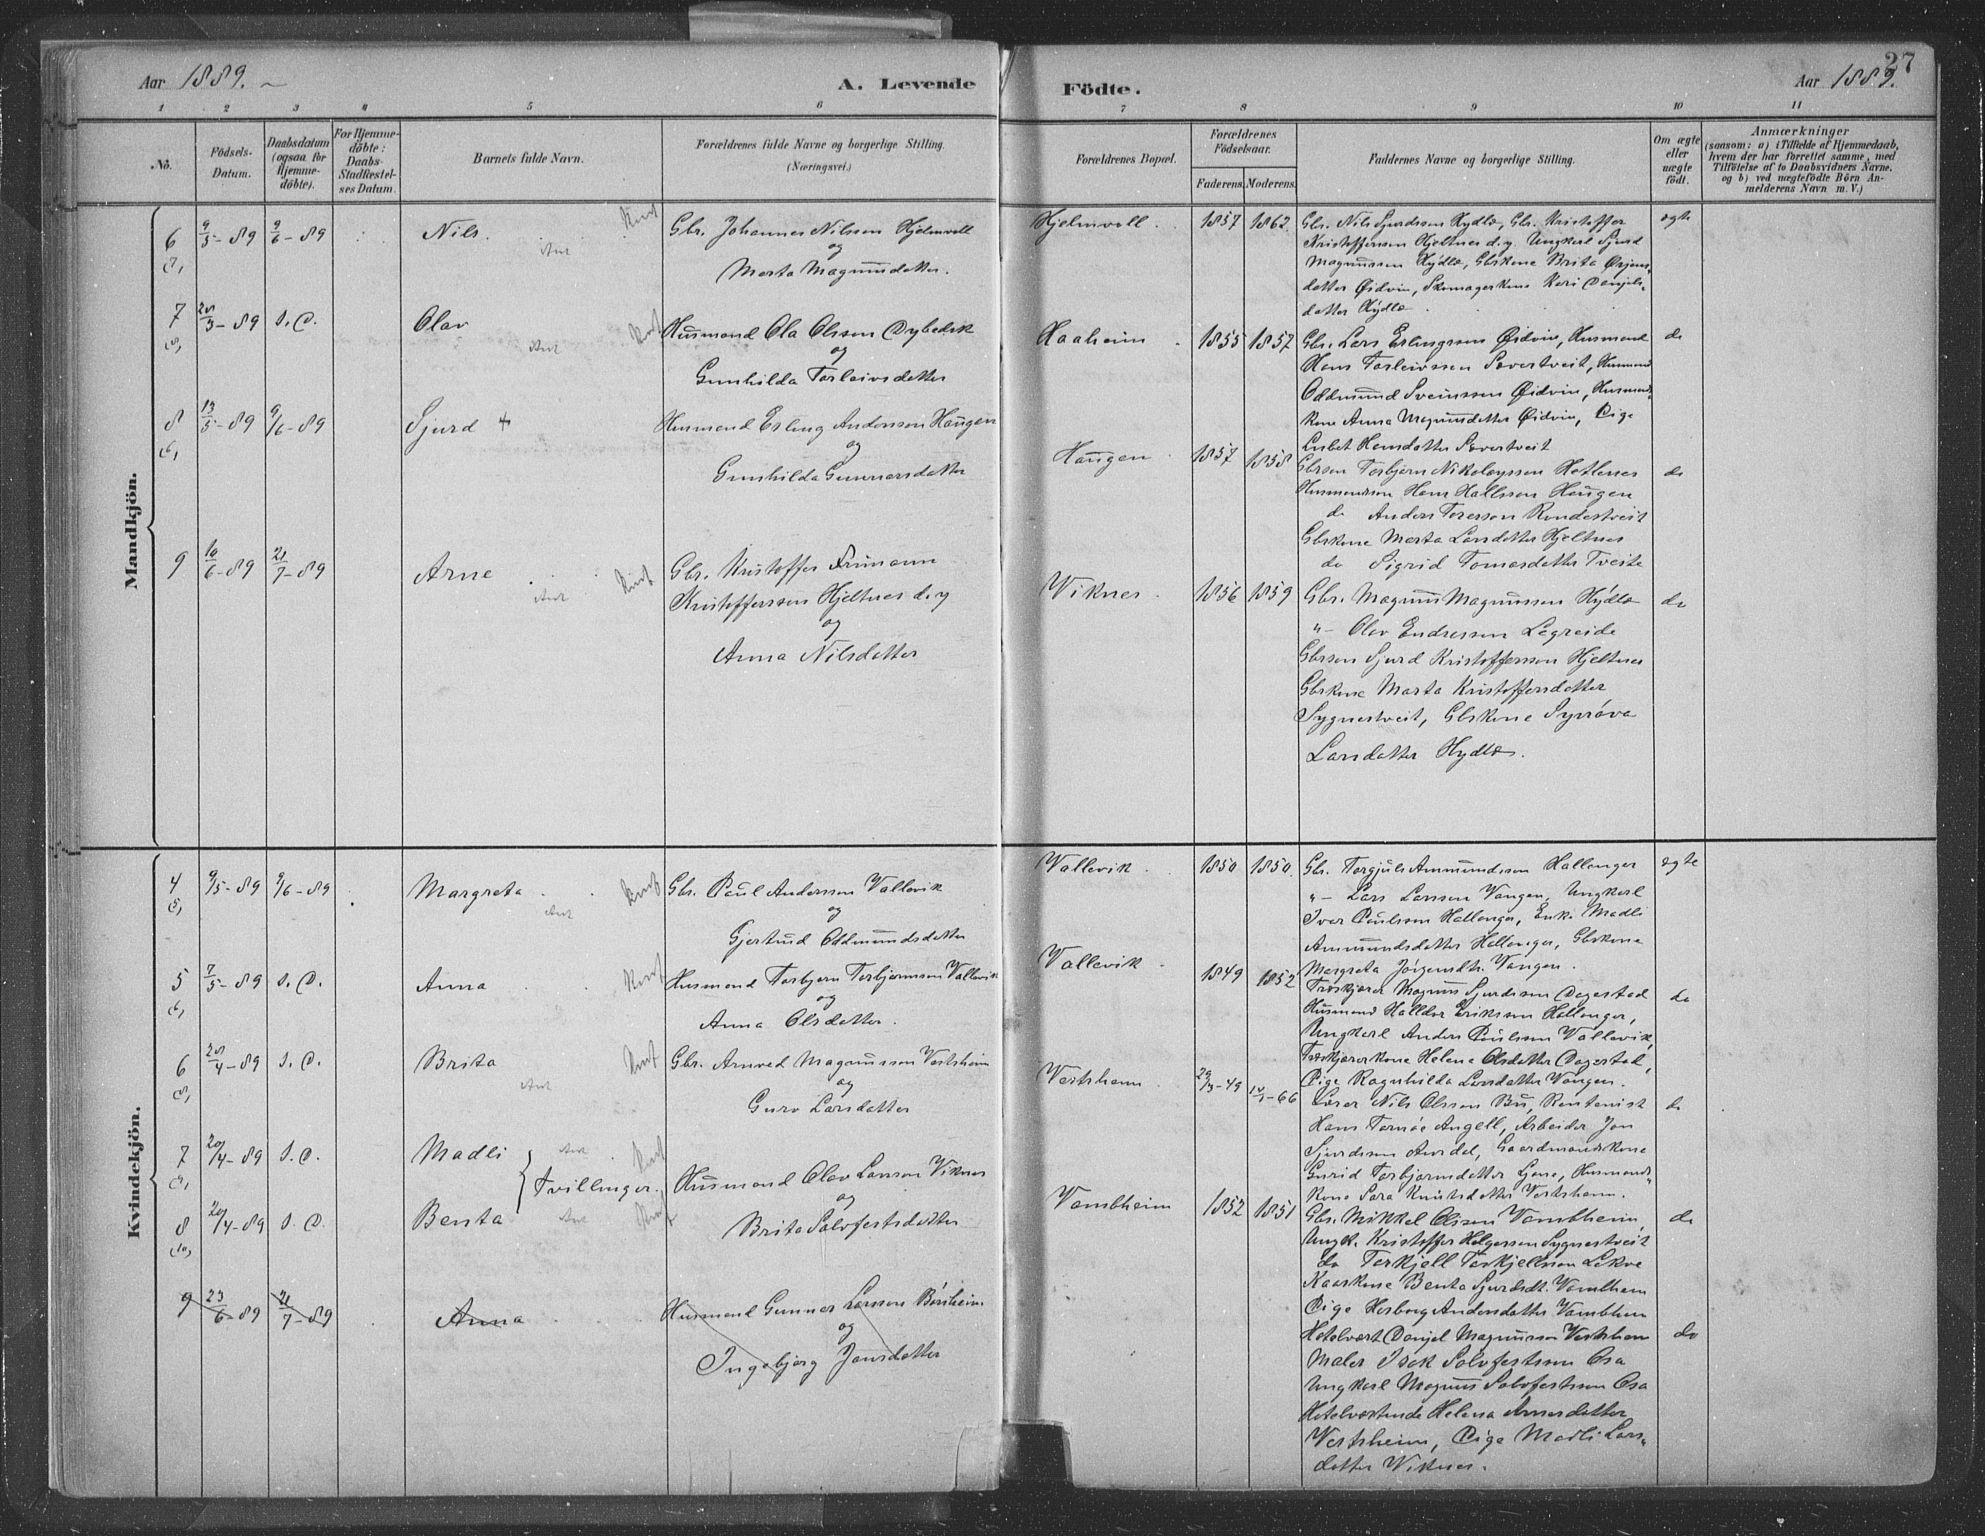 Aar 1889.
A. Levende
Födte.
Aar 1889.
27
1 2 3 4 5 6 7 8 9 10 11
No.
Födsels-
Datum.
Daabsdatum
(ogsaa for
Hjemme-
döbte).
For Hjemme-
döbte:
Daabs-
Stadfæstel-
ses Datum.
Barnets fulde Navn.
Forældrenes fulde Navne og borgerlige Stilling.
(Næringsvei.)
Forældrenes Bopæl.
Forældrenes
Födselsaar.
Faderens. Moderens.
Faddernes Navne og borgerlige Stilling.
Om ægte
eller
uægte
födt.
Anmærkninger
(saasom: a) i Tilfælde af Hjemmedaab,
hvem der har forrettet samme, med
Tilföielse af to Daabsvidners Navne,
og b) ved uægtefödte Börn An-
melderens Navn m. V.)
Mandkjön.
6 9/5-89 9/6-89 Nils.
Gbr. Johannes Nilssen Hjelmvoll
og
Marta Magnusdatter.
Hjelmvoll. 1857 1862
Gbr. Nils Sjurdssen Hydle, Gbr. Kristoffer
Kristofferssen Hjeltnes d.y. Ungkarl Sjurd
Magnussen Hydle, Gbskone Brita
datter Øidvin, Skomagerkone Kari Danjels-
datter Hydle
ægte
7 20/3-89 S.D. Olav
Husmand Ola Olssen Dybedsk
og
Gunhilda Torleivsdatter
Haaheim 1855 1857
Gbr. Lars Erlingssen Øidvin, Husmand
Hans Torleivssen Sævertveit, Husmand
Oddmund Sveinssen Øidvin, Husmands-
kone Anna Magnusdatter Øidvin, Pige
Lisbet Hansdatter Sævertveit
do
8 13/5-89 9/6-89 Sjurd +
Husmand Erling Anderssen Haugen
og
Gunhilda Gunnarsdatter
Haugen 1857 1858
Gbrsøn Torbjørn Nikolayssen Hotlenes
Husmandssøn Hans Hallssen Haugen
do Anders Toressen Rondestveit
Gbskone Marta Larsdatter Hjeltnes
do Sigrid Tomasdatter Tveite
do
9 10/6-89 21/7-89 Arne
Gbr. Kristoffer Frimann
Kristofferssen Hjeltnes d.y
og
Anna Nilsdatter
Viknes. 1856 1859
Gbr. Magnus Magnussen Hydle
"- Olav Endressen Legreide
Gbrsøn Sjurd Kristofferssen Hjeltnes
Gbskone Marta Kristoffersdatter
Sygnestveit, Gbskone Synnøva
Larsdatter Hydle.
do
Kvindekjön.
4 9/5-89 9/6-89 Margreta
Gbr. Paul Anderssen Vallevik
og
Gjertrud Oddmundsdatter
Vallevik 1850 1850.
Gbr. Torgjuls Ammundssen Hallanger
"- Lars Larssen Vangen, Ungkarl
Ivar Paulssen Hallanger, Enke Madli
Ammundsdatter Hallanger, Gbskone
Margreta Jörgensdtr. Vangen.
ægte
5 7/5-89 S.D. Anna
Husmand Torbjørn Torbjørnssen Vallevik
og
Anna Olsdatter.
Vallevik 1849 1852
Træskjærer Magnus Sjurdssen Dagestad
Husmand Halldor Erikssen Hallanger,
Ungkarl Anders Paulssen Vallevik,
Træskjærerkone Helena Olsdatter Dagestad,
Pige Ragnhilda Larsdatter Vangen.
do
6 20/4-89 S.D. Brita
Gbr. Amved Magnussen Vestrheim
og
Guro Larsdatter
Vestrheim 29/3-49 10/1-66
Lærer Nils Olssen Bu, Rentenist
Hans Tornöe Angell, Arbeider Jon
Sjurdssen Aurdal, Gaardmandskone
Gurid Torbjørnsdatter Ljono, Husmands-
kone Sara Knutsdatter Vestrheim.
do
7 20/4-89 S.D. Madli
Tvillinger.
8 20/4-89 S.D. Benta
Husmand Olav Larssen Viknes
og
Brita Solvfestsdatter
Vambheim 1852 1851
Gbr. Mikkel Olssen Vambheim,
Ungk. Kristoffer Helgessen Sygnestveit
do Torkjell Torkjellssen Lekve
Kaarkone Benta Sjurdsdt. Vambheim
Pige Herborg Andersdatter Vambheim
do
9 23/6-89 21/7-89 Anna
Husmand Gunnar Larssen Börsheim
og
Ingebjørg Jonsdatter
Hotelvært Danjel Magnussen Vestrheim
Maler Isak Solvfestssen Osa
Ungkarl Magnus Solvfestssen Osa
Hotelværtinde Helena Arnesdatter
Vestrheim, Pige Madli Lars-
datter Viknes.
do